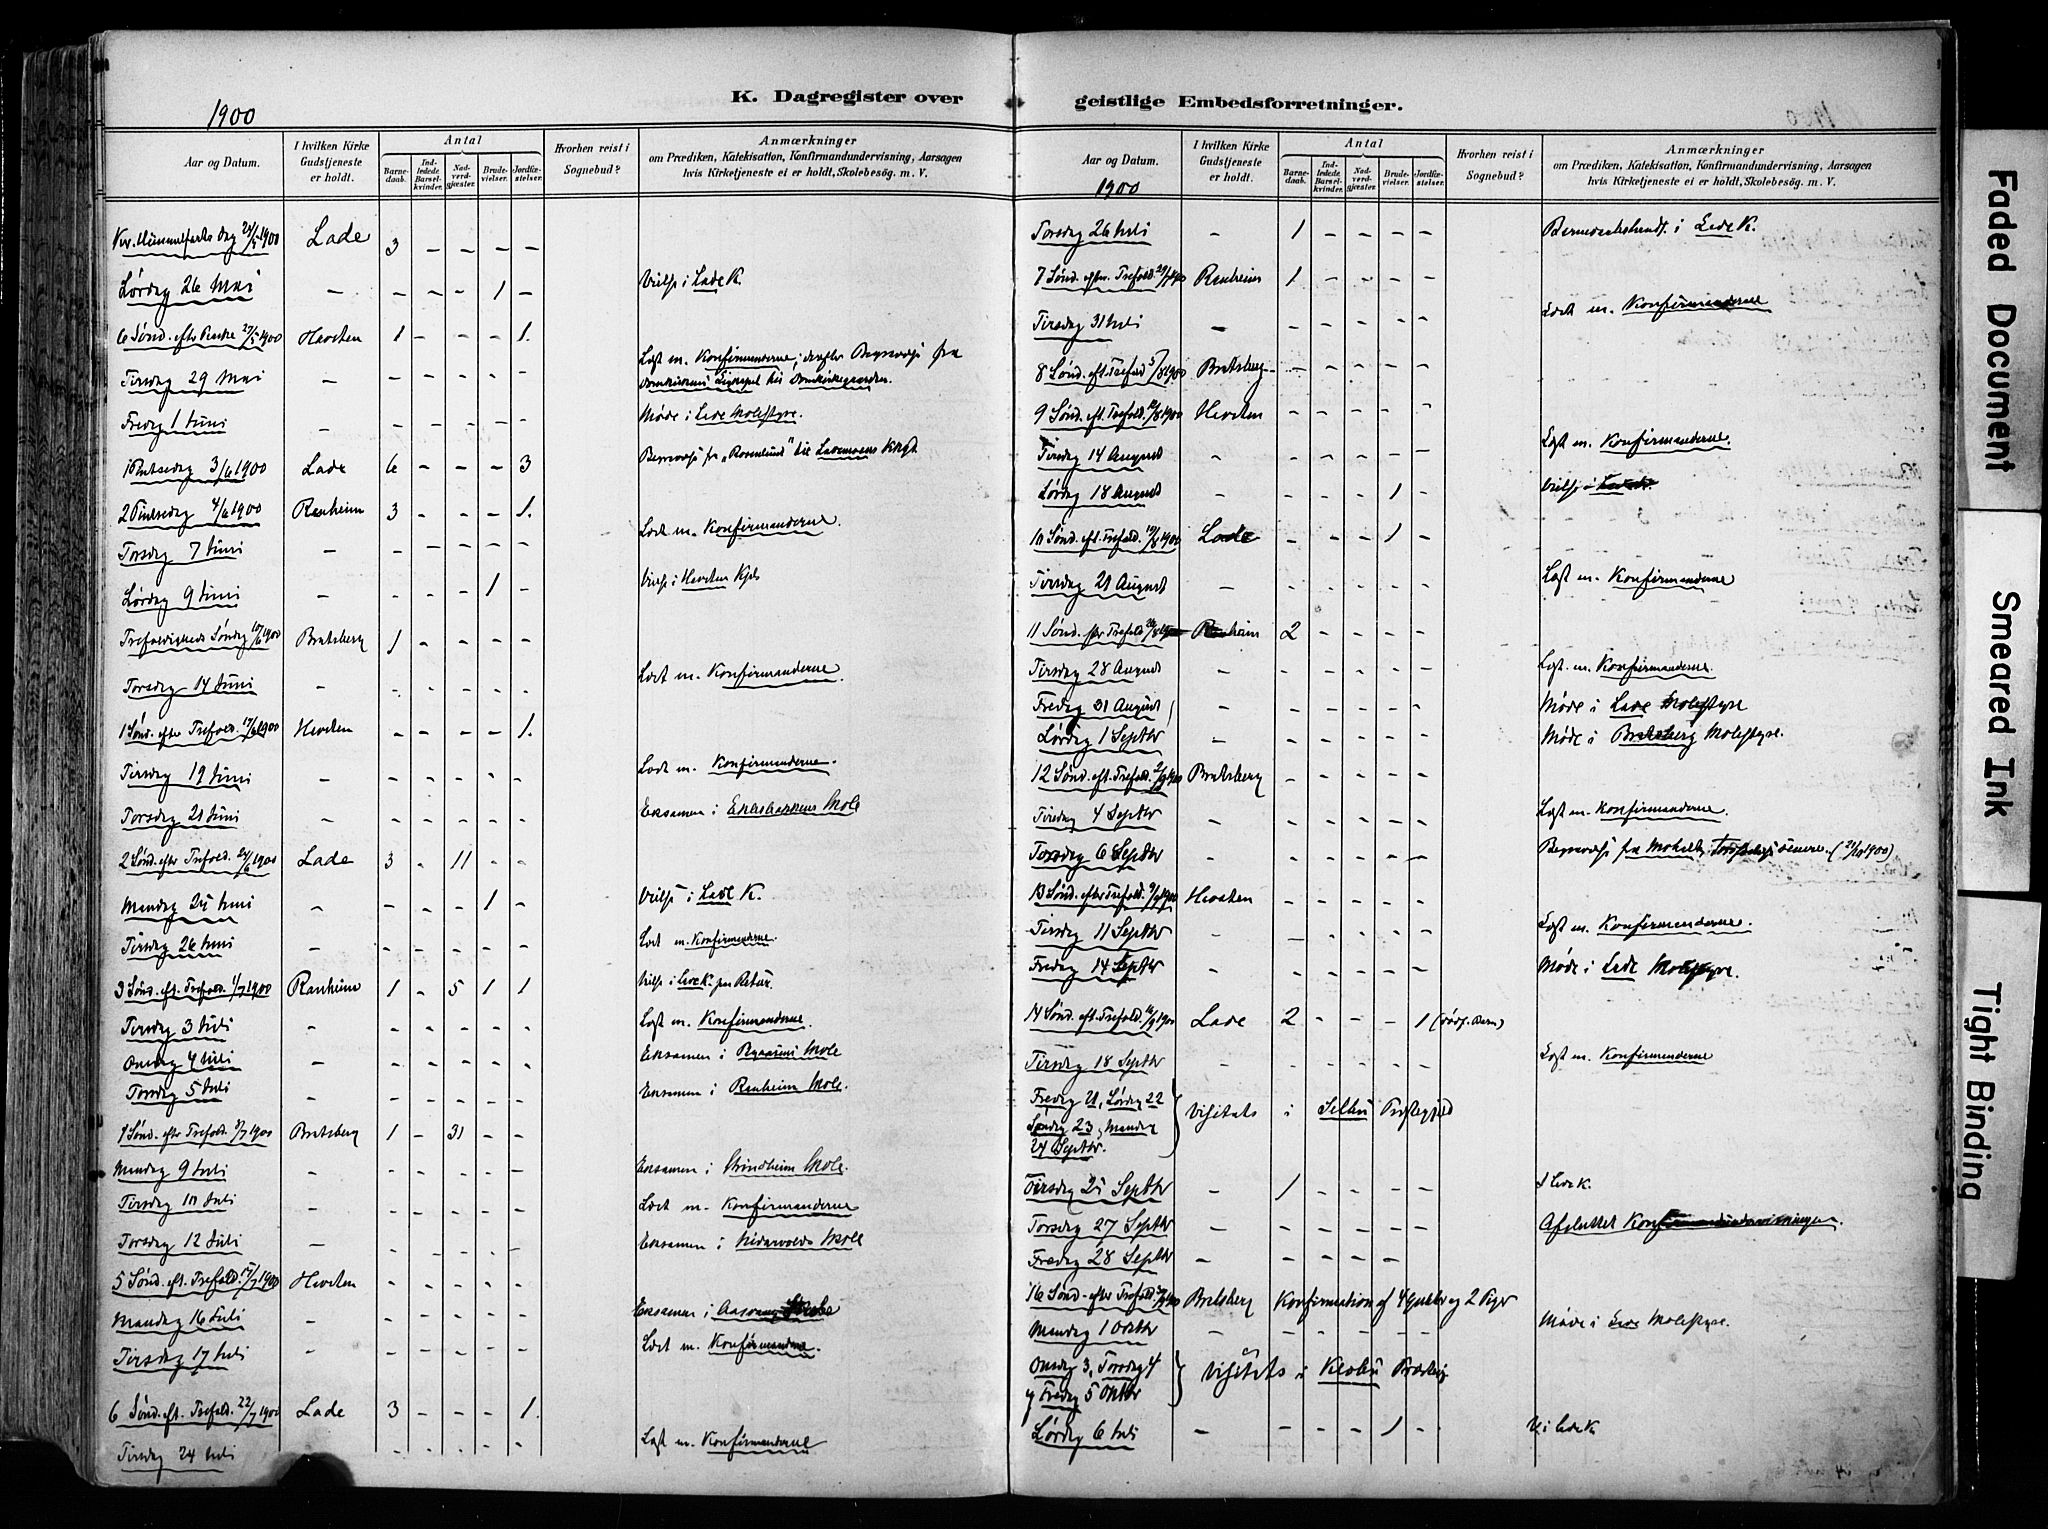 K. Dagregister over geistlige Embedsforretninger.
1900
Aar og Datum.
I hvilken Kirke Gudstjeneste er holdt.
Antal
Barnedaab.
Indledede Barselkvinder.
Nadverdgjester.
Brudevielser.
Jordfæstelser.
Hvorhen reist i Sognebud?
Anmærkninger
om Prædiken, Katekisation, Konfirmandundervisning, Aarsagen
hvis Kirketjeneste ei er holdt, Skolebesøg. m. V.
Lade 3 - - - -
Lørdag 26 Mai - - - - 1 - Vielse i Lade K.
6 Sønd. efter Paaske 27/5 1900 1 - - - 1.
Tirsdag 29 Mai - - - - - - Læst m. Konfirmanderne, fra
Fredag 1 Juni - - - - - - Møde i Lade Skolestyre.
1 Pintsedag 3/6 1900 Lade 6 - - - 3 fra "Rosenlund" til
2 Pintsedag 4/6 1900 Ranheim 3 - - - 1.
Torsdag 7 Juni - - - - - - Læst m. Konfirmanderne.
Lørdag 9 Juni - - - - 1 - Vielse i
Trefoldigheds Søndag 10/6 1900 Bratsberg 1 - - - -
Torsdag 14 Juni - - - - - - Læst m. Konfirmanderne.
1 Sønd. efter Trefold. 17/6 1900 - - - - 1.
Tirsdag 19 Juni - - - - - - Læst m. Konfirmanderne.
Torsdag 21 Juni - - - - - - Eksamen i Skole
2 Sønd. efter Trefold. 24/6 1900 Lade 3 - 11 - -
Mandag 25 Juni - - - - 1 - Vielse i Lade K.
Tirsdag 26 Juni - - - - - - Læst m. Konfirmanderne.
3 Sønd. eft. Trefold. 1/7 1900 Ranheim 1 - 5 1 1 Vielse i Lade K.
Tirsdag 3 Juli - - - - - - Læst m. Konfirmanderne.
Onsdag 4 Juli - - - - - - Eksamen i Skole
Torsdag 5 Juli - - - - - - Eksamen i Ranheim Skole.
Sønd. efter Trefold. 8/7 1900 Bratsberg 1 - 31 - -
Mandag 9 Juli - - - - - - Eksamen i Strindheim Skole.
Tirsdag 10 Juli - - - - - - Læst m. Konfirmanderne
Torsdag 12 Juli - - - - - - Eksamen i Nidarvolds Skole
5 Sønd. eft. Trefold. 15/7 1900 - - - - -
Mandag 16 Juli - - - - - - Eksamen i
Tirsdag 17 Juli - - - - - - Læst m. Konfirmanderne.
6 Sønd. eft. Trefold. 22/7 1900 Lade 3 - - - 1.
Tirsdag 24 Juli - - - - - Læst m. Konfirmanderne
1900
Aar og Datum.
I hvilken Kirke Gudstjeneste er holdt.
Antal
Barnedaab.
Indledede Barselkvinder.
Nadverdgjester.
Brudevielser.
Jordfæstelser.
Hvorhen reist i Sognebud?
Anmærkninger
om Prædiken, Katekisation, Konfirmandundervisning, Aarsagen
hvis Kirketjeneste ei er holdt, Skolebesøg. m. V.
Torsdag 26 Juli - 1 - - - - i Lade K.
7 Sønd. efter Trefold. 29/7 1900 Ranheim 1 - - - -
Tirsdag 31 Juli - - - - - - Læst m. Konfirmanderne
8 Sønd. eft. Trefold 5/8 1900 Bratsberg - - - - -
9 Sønd. eft. Trefold. 12/8 1900 - - - - -
Tirsdag 14 August - - - - - - Læst m. Konfirmanderne.
Lørdag 18 August - - - - 1 - Vielse i
10 Sønd. eft. Trefold. 19/8 1900 Lade - - - 1 -
Tirsdag 21 August - - - - - - Læst m. Konfirmanderne
11 Sønd. efter Trefold 26/8 1900 Ranheim 2 - - - -
Tirsdag 28 August - - - - - - Læst. m. Konfirmanderne.
Fredag 31 August - - - - - Møde i Lade Skolestyre
Lørdag 1 Septbr - - - - - - Møde i Bratsberg Skolestyre.
12 Sønd. eft. Trefold. 2/9 1900 Bratsberg - - - - -
Tirsdag 4 Septbr - - - - - - Læst m. Konfirmanderne
Torsdag 6 Septbr - - - - - - fra senere.
13 Sønd. efter Trefold. 9/9 1900 - - - - -
Tirsdag 11 Septbr - - - - - - Læst m. Konfirmanderne.
Fredag 14 Septbr - - - - - - Møde i Lade Skolestyre.
14 Sønd. eft. Trefold. 16/9 1900 Lade 2 - - - 1 (dødf. Barn)
Tirsdag 18 Septbr - - - - - - Læst m. Konfirmanderne
Fredag 21, Lørdag 22
Søndag 23, Mandag
24 Septbr. } Visitats i Selbu Prestegjeld
Tirsdag 25 Septbr - 1 - - - - I Lade K.
Torsdag 27 Septbr - - - - - - Afsluttet Konfirmandundervisningen.
Fredag 28 Septbr - - - - - -
16 Sønd. efter Trefold. 30/9 1900 Bratsberg Konfirmation af 4 og 2 Piger
Mandag 1 Oktbr - - - - - - Møde i Lade Skolestyre.
Onsdag 3, Torsdag 4
og Fredag 5 Oktbr } Visitats i Klæbu
Lørdag 6 Juli - - - - 1 - V. i Lade K
Faded Document
Smeared Ink
Tight Binding